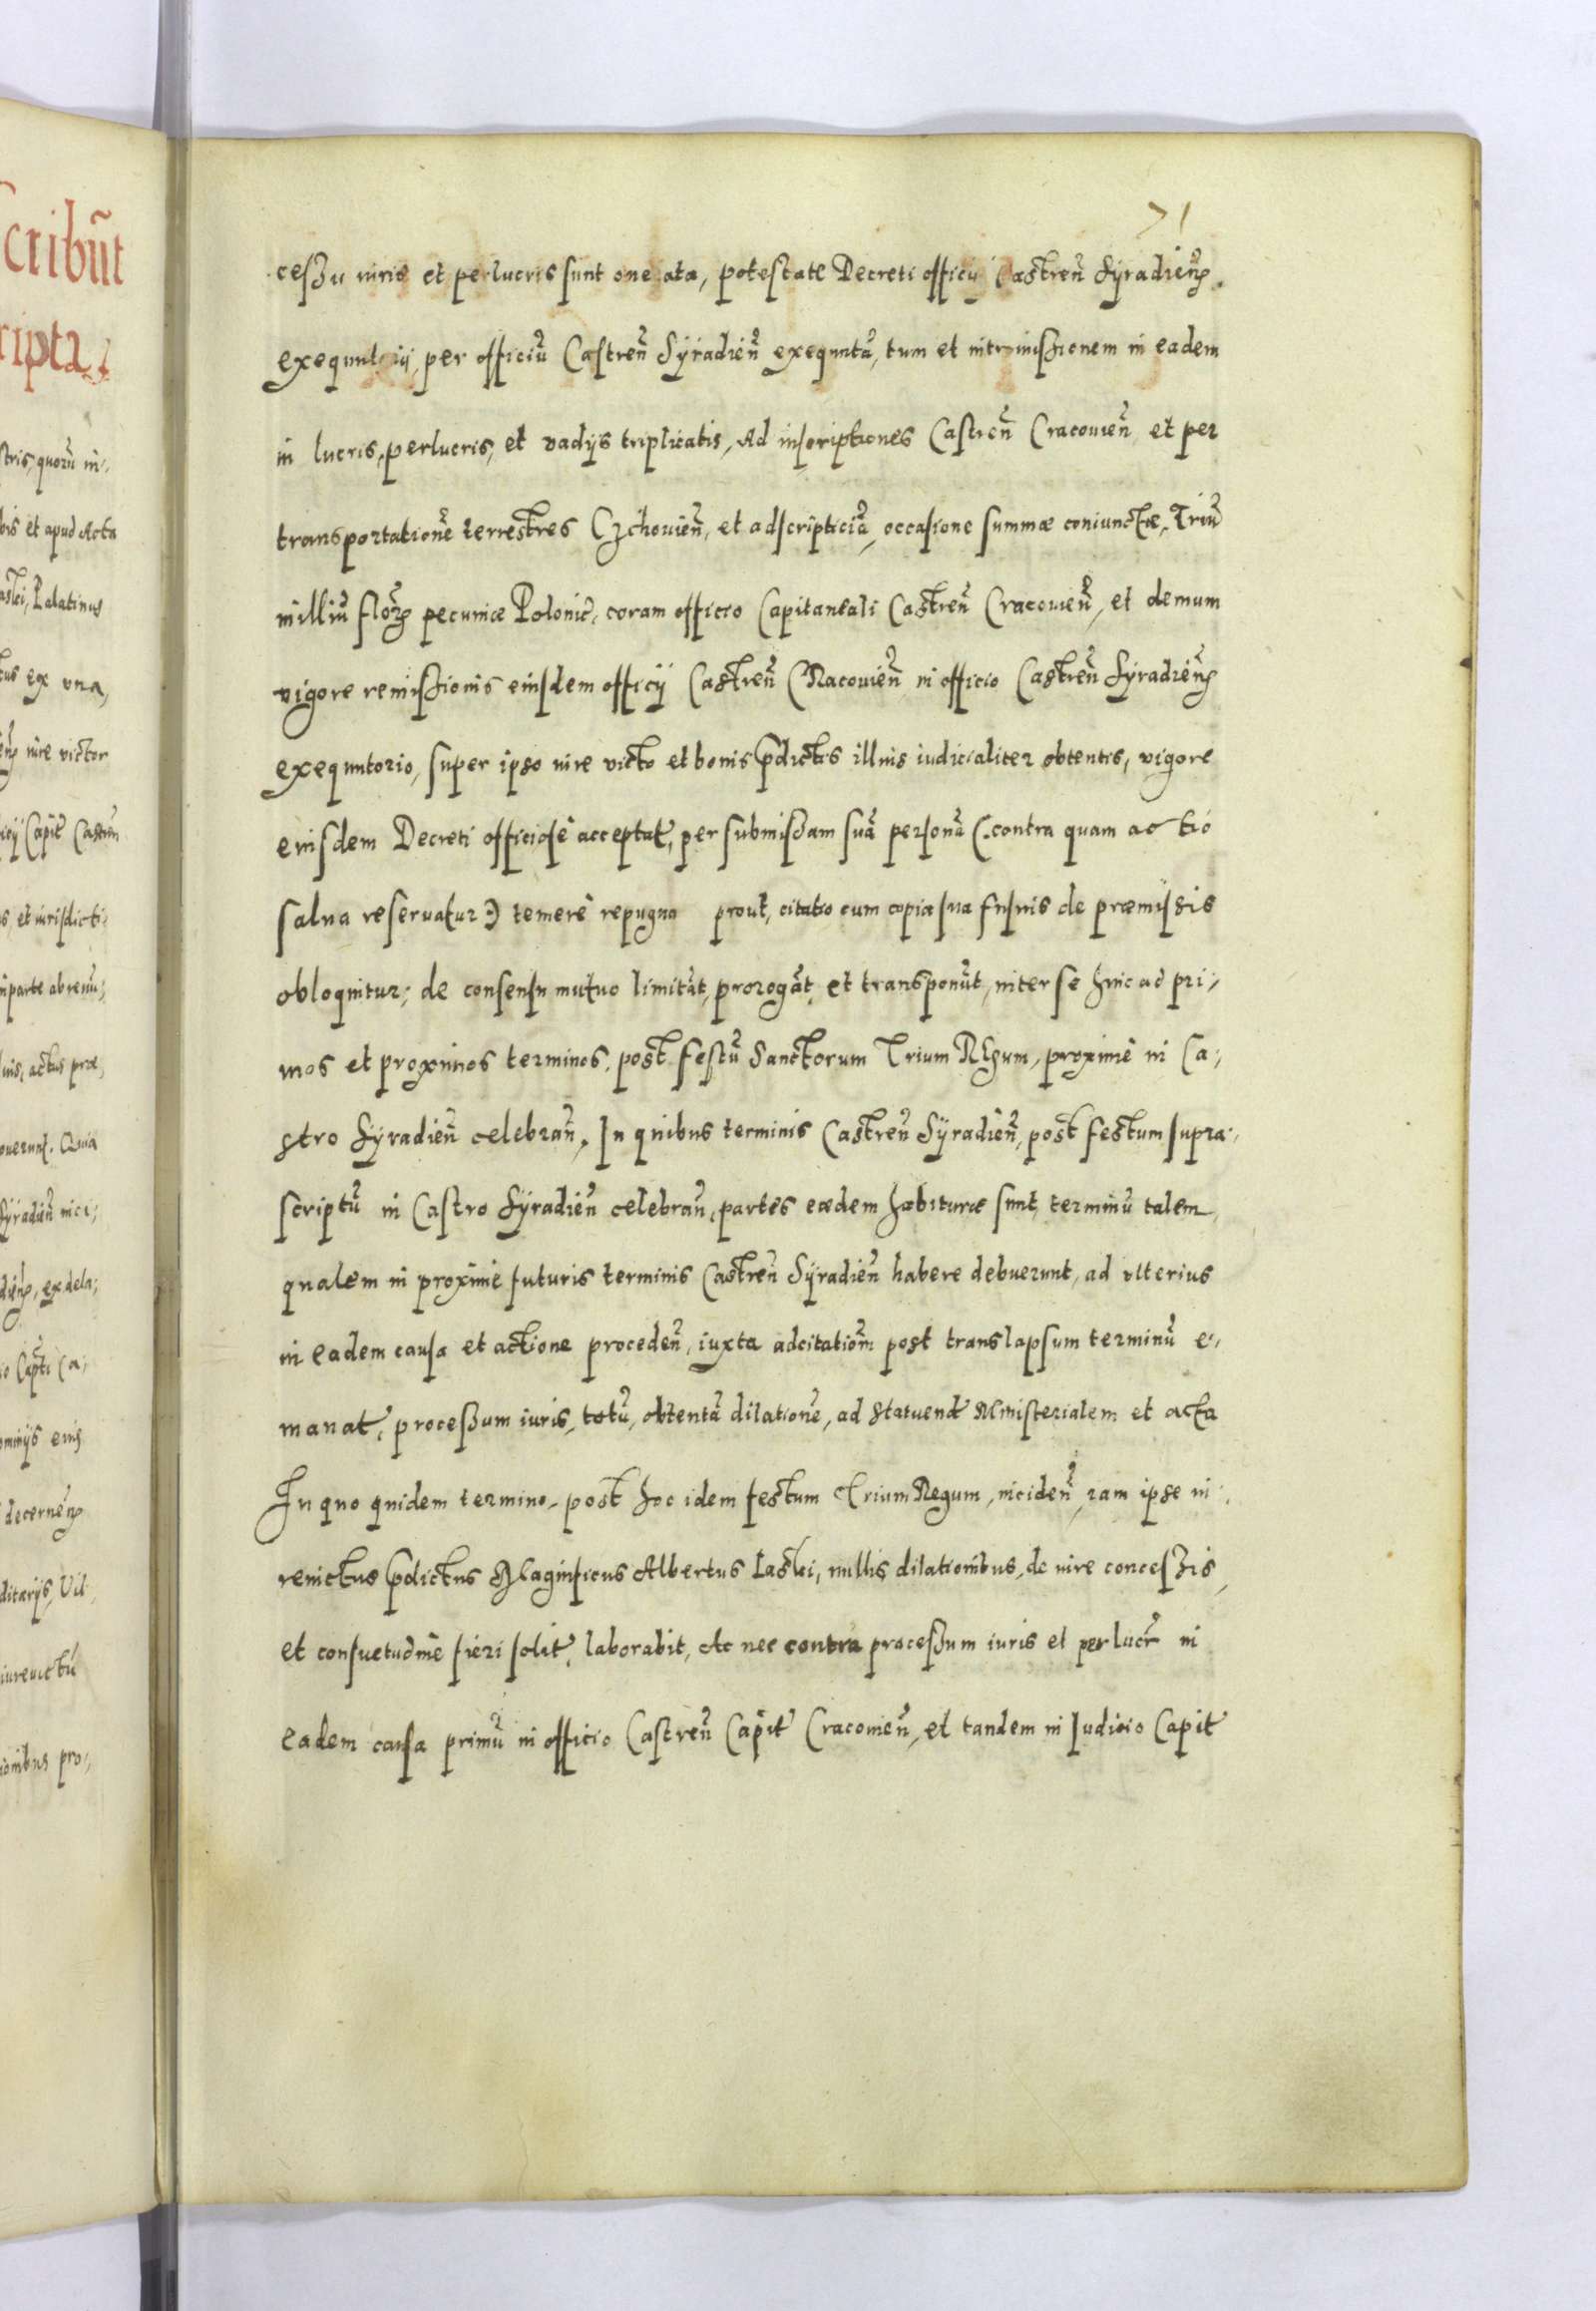 cribũt
ripta.
tris, quorũ in-
bis et apud Acta
aski, Palatinus
tus ex una,
iure victor
icij Capit̃ Castren̄
et iurisdicti-
parte ab renũ;
actus præ,
overunt. Quia
Syradien̄ inci;
ex dela;
Capti Ca;
ominijs eius
decernen̄
ditarijs, Vil
iurevictũ
ionibus pro,
71
cessu iuris et perlucris sunt one ata, potestate Decreti officij Castren̄ Syradien̄.
exequutorij, per officiũ Castren̄ Syradien̄ exequutã, tum et intromissionem in eadem
in lucris, perlucris, et vadijs triplicatis, Ad inscriptiones Castren̄ Cracovien̄ et per
transportationẽ terrestres Czchovien̄, et adscripticiã, occasione summæ coniunctæ, Triũ
milliũ florȝ pecuniæ Polonic̄, coram officio Capitaneali Castren̄ Cracovien̄, et demum
vigore remissionis eiusdem officij Castren̄ CRacovien̄ in officio Castren̄ Syradien̄
exequutorio, super ipso iure victo et bonis p̄dictis illius iudicialiter obtentis, vigore
eiusdem Decreti officiosè acceptat̃, per submissam suã personã (:contra quam actio
salua reseruatur:) temerè repugna prout, citatio cum copia sua fusius de præmissis
obloquitur; de consensu mutuo limitãt, prorogãt, et transponũt, inter se hinc ad pri-
mos et proximos terminos, post festũ Sanctorum Trium REgum, proximè in Ca-
stro Syradien̄ celebran̄. In quibus terminis Castren̄ Syradien̄, post festum supra-
scriptũ in Castro Syradien̄ celebran̄, partes eædem habituræ sunt, terminũ talem,
qualem in proximè futuris terminis Castren̄ Syradien̄ habere debuerunt, ad ulterius
in eadem causa et actione proceden̄, iuxta adcitationẽ post translapsum terminũ e-
manat̃, processum iuris, totũ, obtentã dilationẽ, ad statuend̃ Ministerialem et acta
In quo quidem termino, post hoc idem festum Trium Regum, inciden̄, iam ipse iu-
revictus p̄dictus Magnificus Albertus Laski, nullis dilationibus, de iure concessis,
et consuetudine fieri solit̃, laborabit, Ac nec contra processum iuris et per lucr̃ in
eadem causa primũ in officio Castren̄ Capit̃ Cracovien̄, et tandem in Iudicio Capit̃